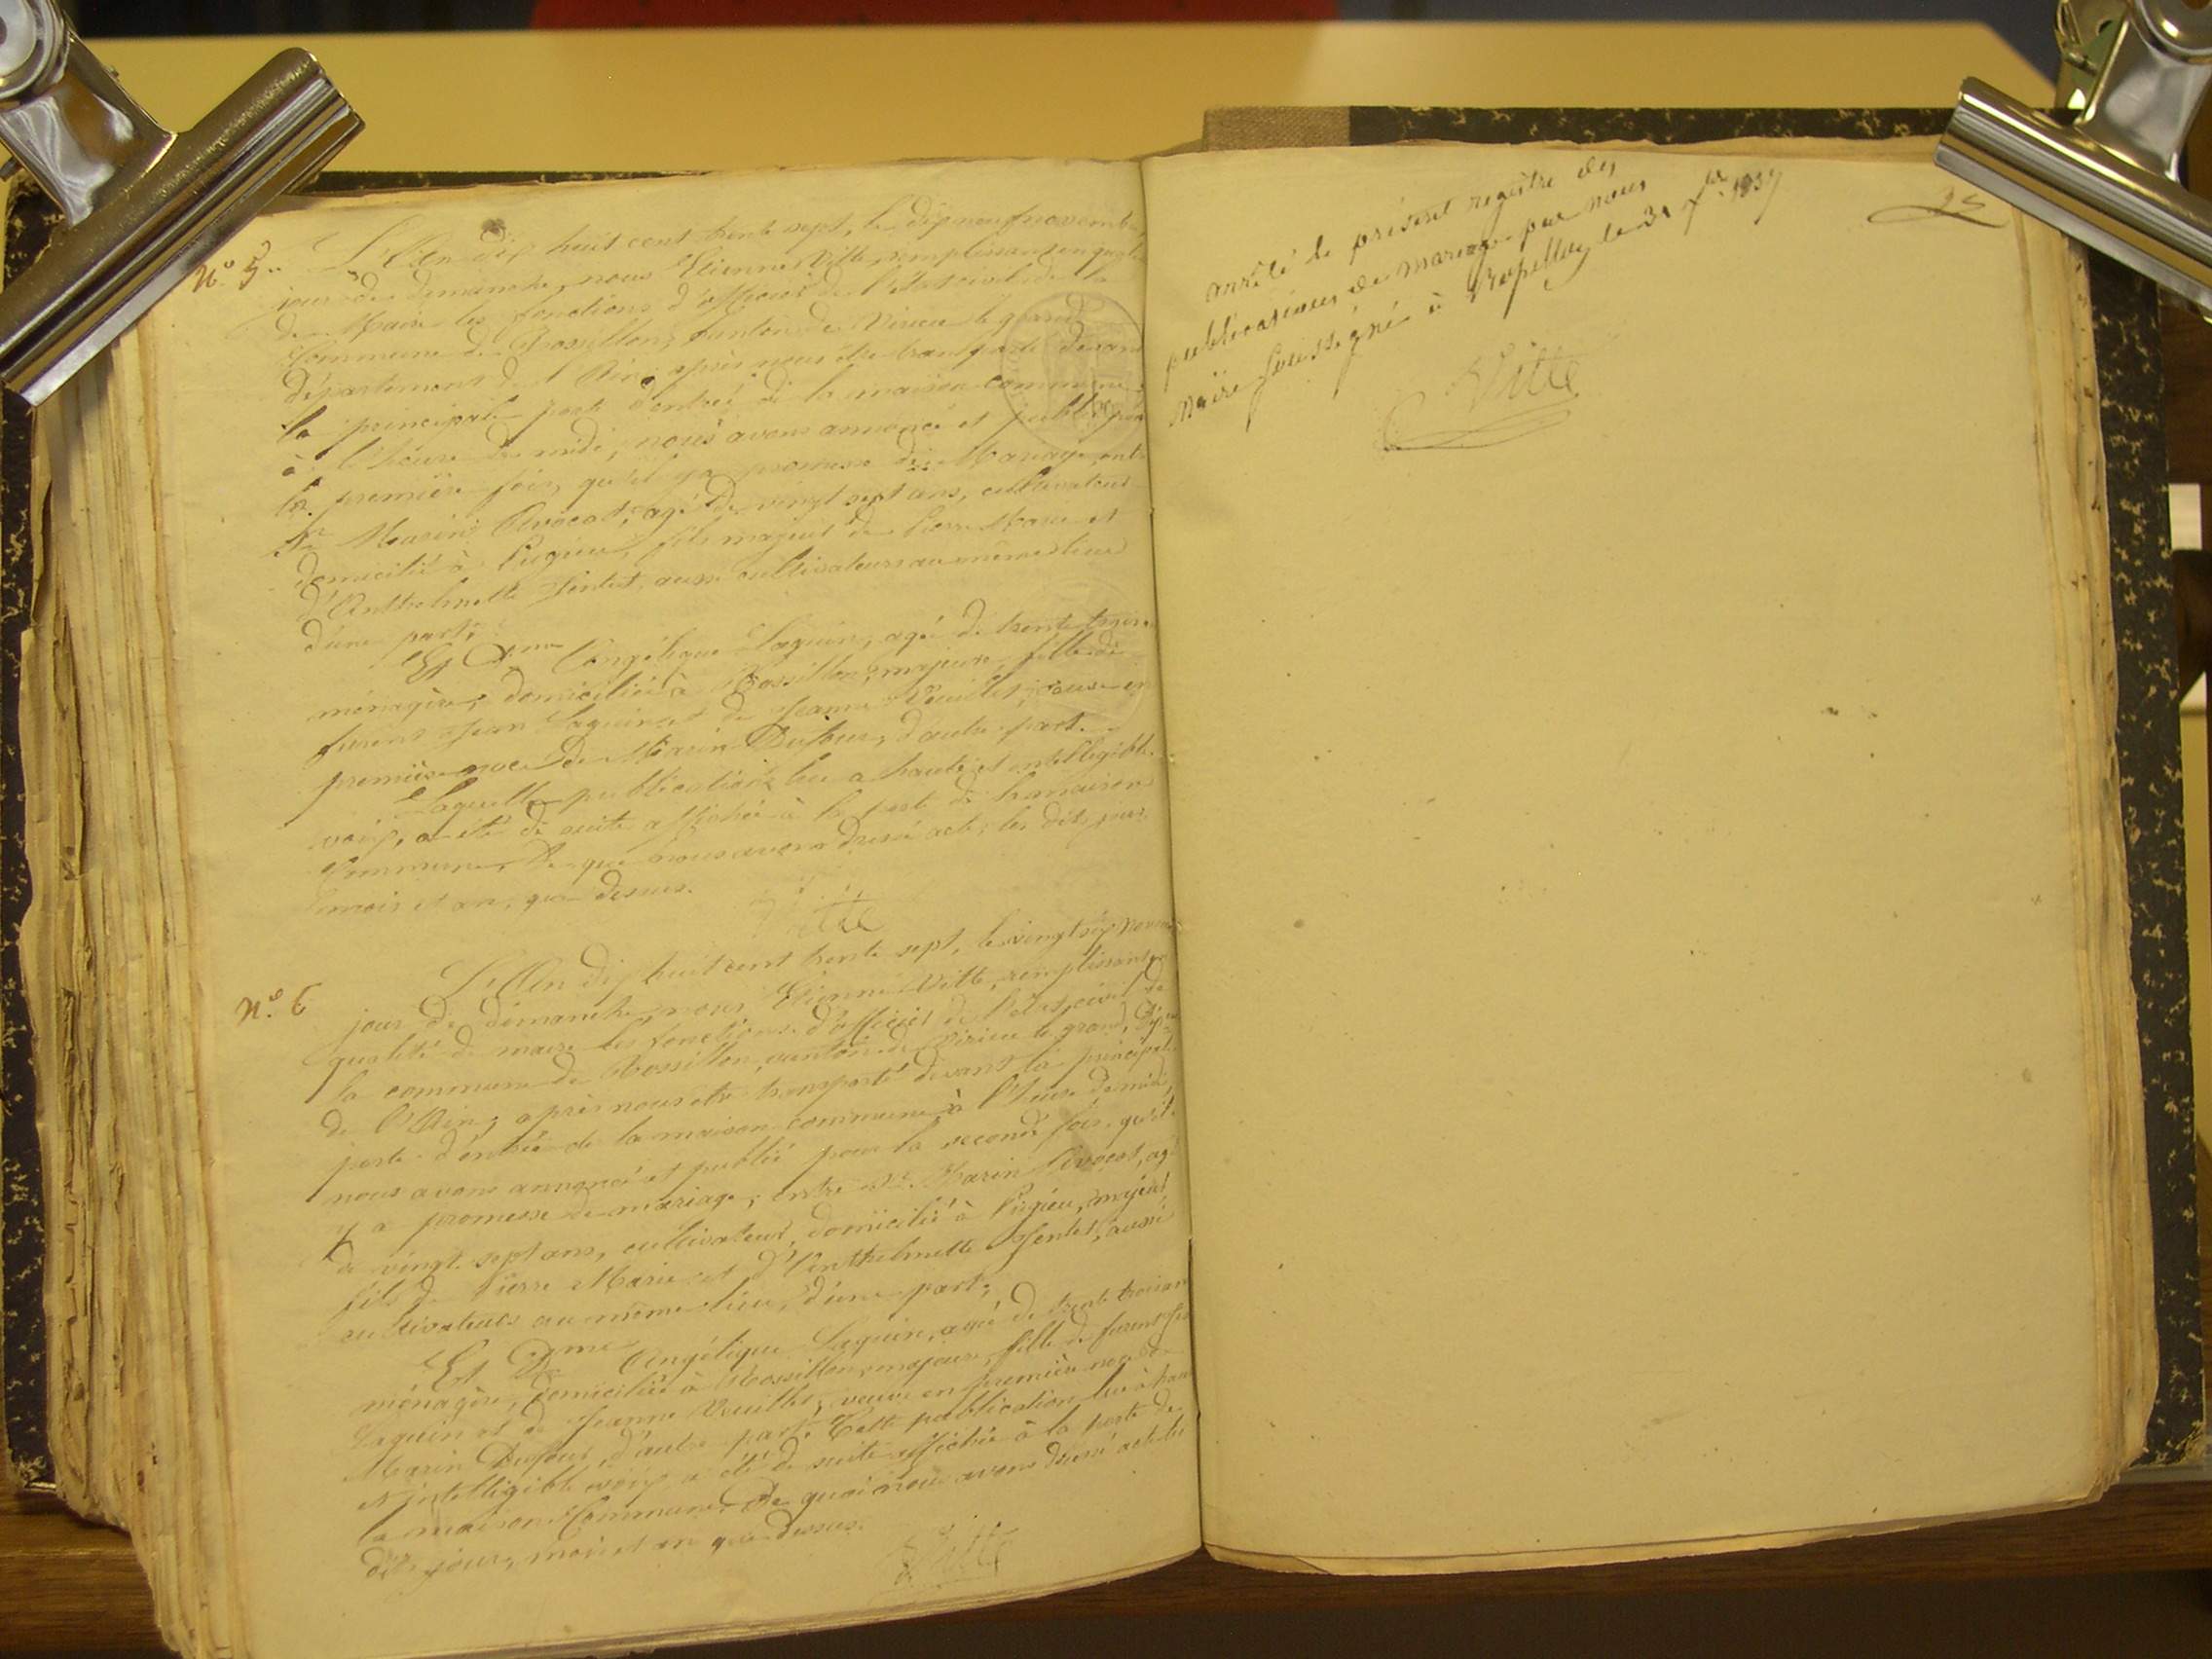 N.º 5..
L'An dix huit cent trente sept, le dix neuf novembre
jour de dimanche, nous Etienne Vitte, remplissant en qualité
de Maire les fonctions d'officier de l'état civil de la
Commune de Rossillon, canton de Virieu le grand
département de l'Ain, après nous être transporté devant
la principale porte d'entrée de la maison commune
à l'heure de midi, nous avons annoncé et publié pour
la première fois, qu'il y a promesse de Mariage, entre
Sr Marin Avocat, agé de vingt sept ans, cultivateur
domicilié à Pugieu, fils majeur de Pierre Marie et
d'Anthelmette aussi cultivateurs au même lieu
d'une part;
Et Dme Angélique Laguin, agé de trente trois
ménagère, domiciliée à Rossillon, majeure, fille de
furent Jean Laguin et de Jeanne Vuillet, veuve en
première noce de Marin Dufour, d'autre part.
Laquelle publication lue a haute et intelligible
voix, a été de suite affichée à la porte de la maison
Commune, De que nous avons dressé acte, les dits jour
mois et an, que dessus.
Vitte
N.º 6
L'An dix huit cent trente sept, le vingt six novembre
jour de dimanche, nous Etienne Vitte, remplissant en
qualité de maire les fonctions d'officier de l'état civil de
la commune de Rossillon, canton de Virieu le grand, Dépt
de l'Ain, après nous etre transporté devant la principale
porte d'entrée de la maison commune à l'heure de midi,
nous avons annoncé et publié pour la seconde fois, qu'il
y a promesse de mariage, entre Sr Marin Avocat, agé
de vingt sept ans, cultivateur, domicilié à Pugieu, majeur
fils de Pierre Marie et d'Anthelmette aussi
cultivateurs au même lieu, d'une part;
Et Dme Angélique Laguin, agé de trente trois ans
ménagère, domiciliée à Rossillon, majeure, fille de furent Jean
Laguin et de Jeanne Vuillet, veuve en première noce de
Marin Dufour, d'autre part. Cette publication lue à haute
et intelligible voix, a été de suite affichée à la porte de
la maison Commune, De quoi nous avons dressé acte les
dits jour, mois et an que dessus.
Vitte
25
arrêté le présent registre des
publications de mariage par nous
Maire soussigné à Rossillon, le 31 Xbre 1837
Vitte